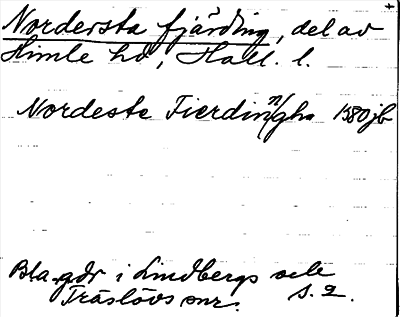 Nordersta fjärding, del av
Himle hd, Hall. l.
Nordeste Fierdingha 1580 jb
Bl a gdr i Lindbergs och
Träslövs snr. s. 2.